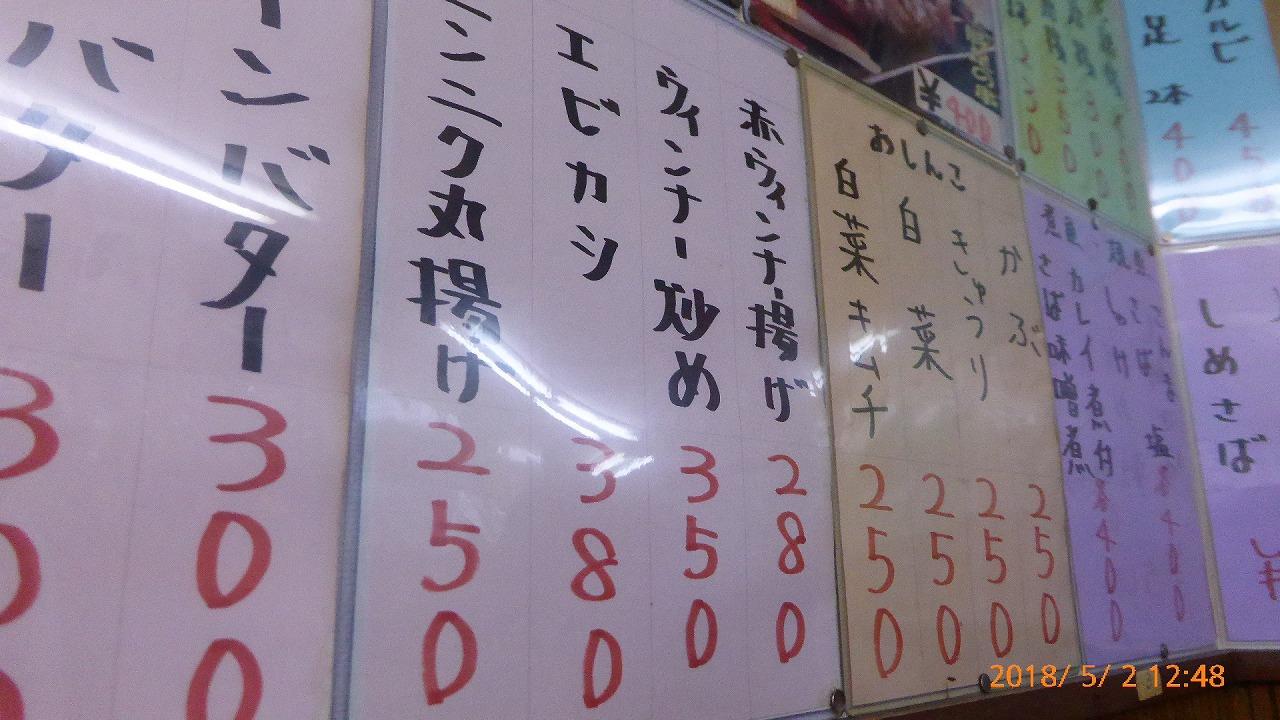 かぶ 250
きゅうり 250
白菜 250
白菜キムチ 250
おしんこ
赤ウィンナー揚げ 280
ウィンナー炒め 350
エビカシ 380
ンニク丸揚げ 250
ーンバター 300
バター 30
しめさば
カレイ煮付
さば味噌煮
400
足 2本 400
カルビ 45
¥400
2018/ 5/ 2 12:48